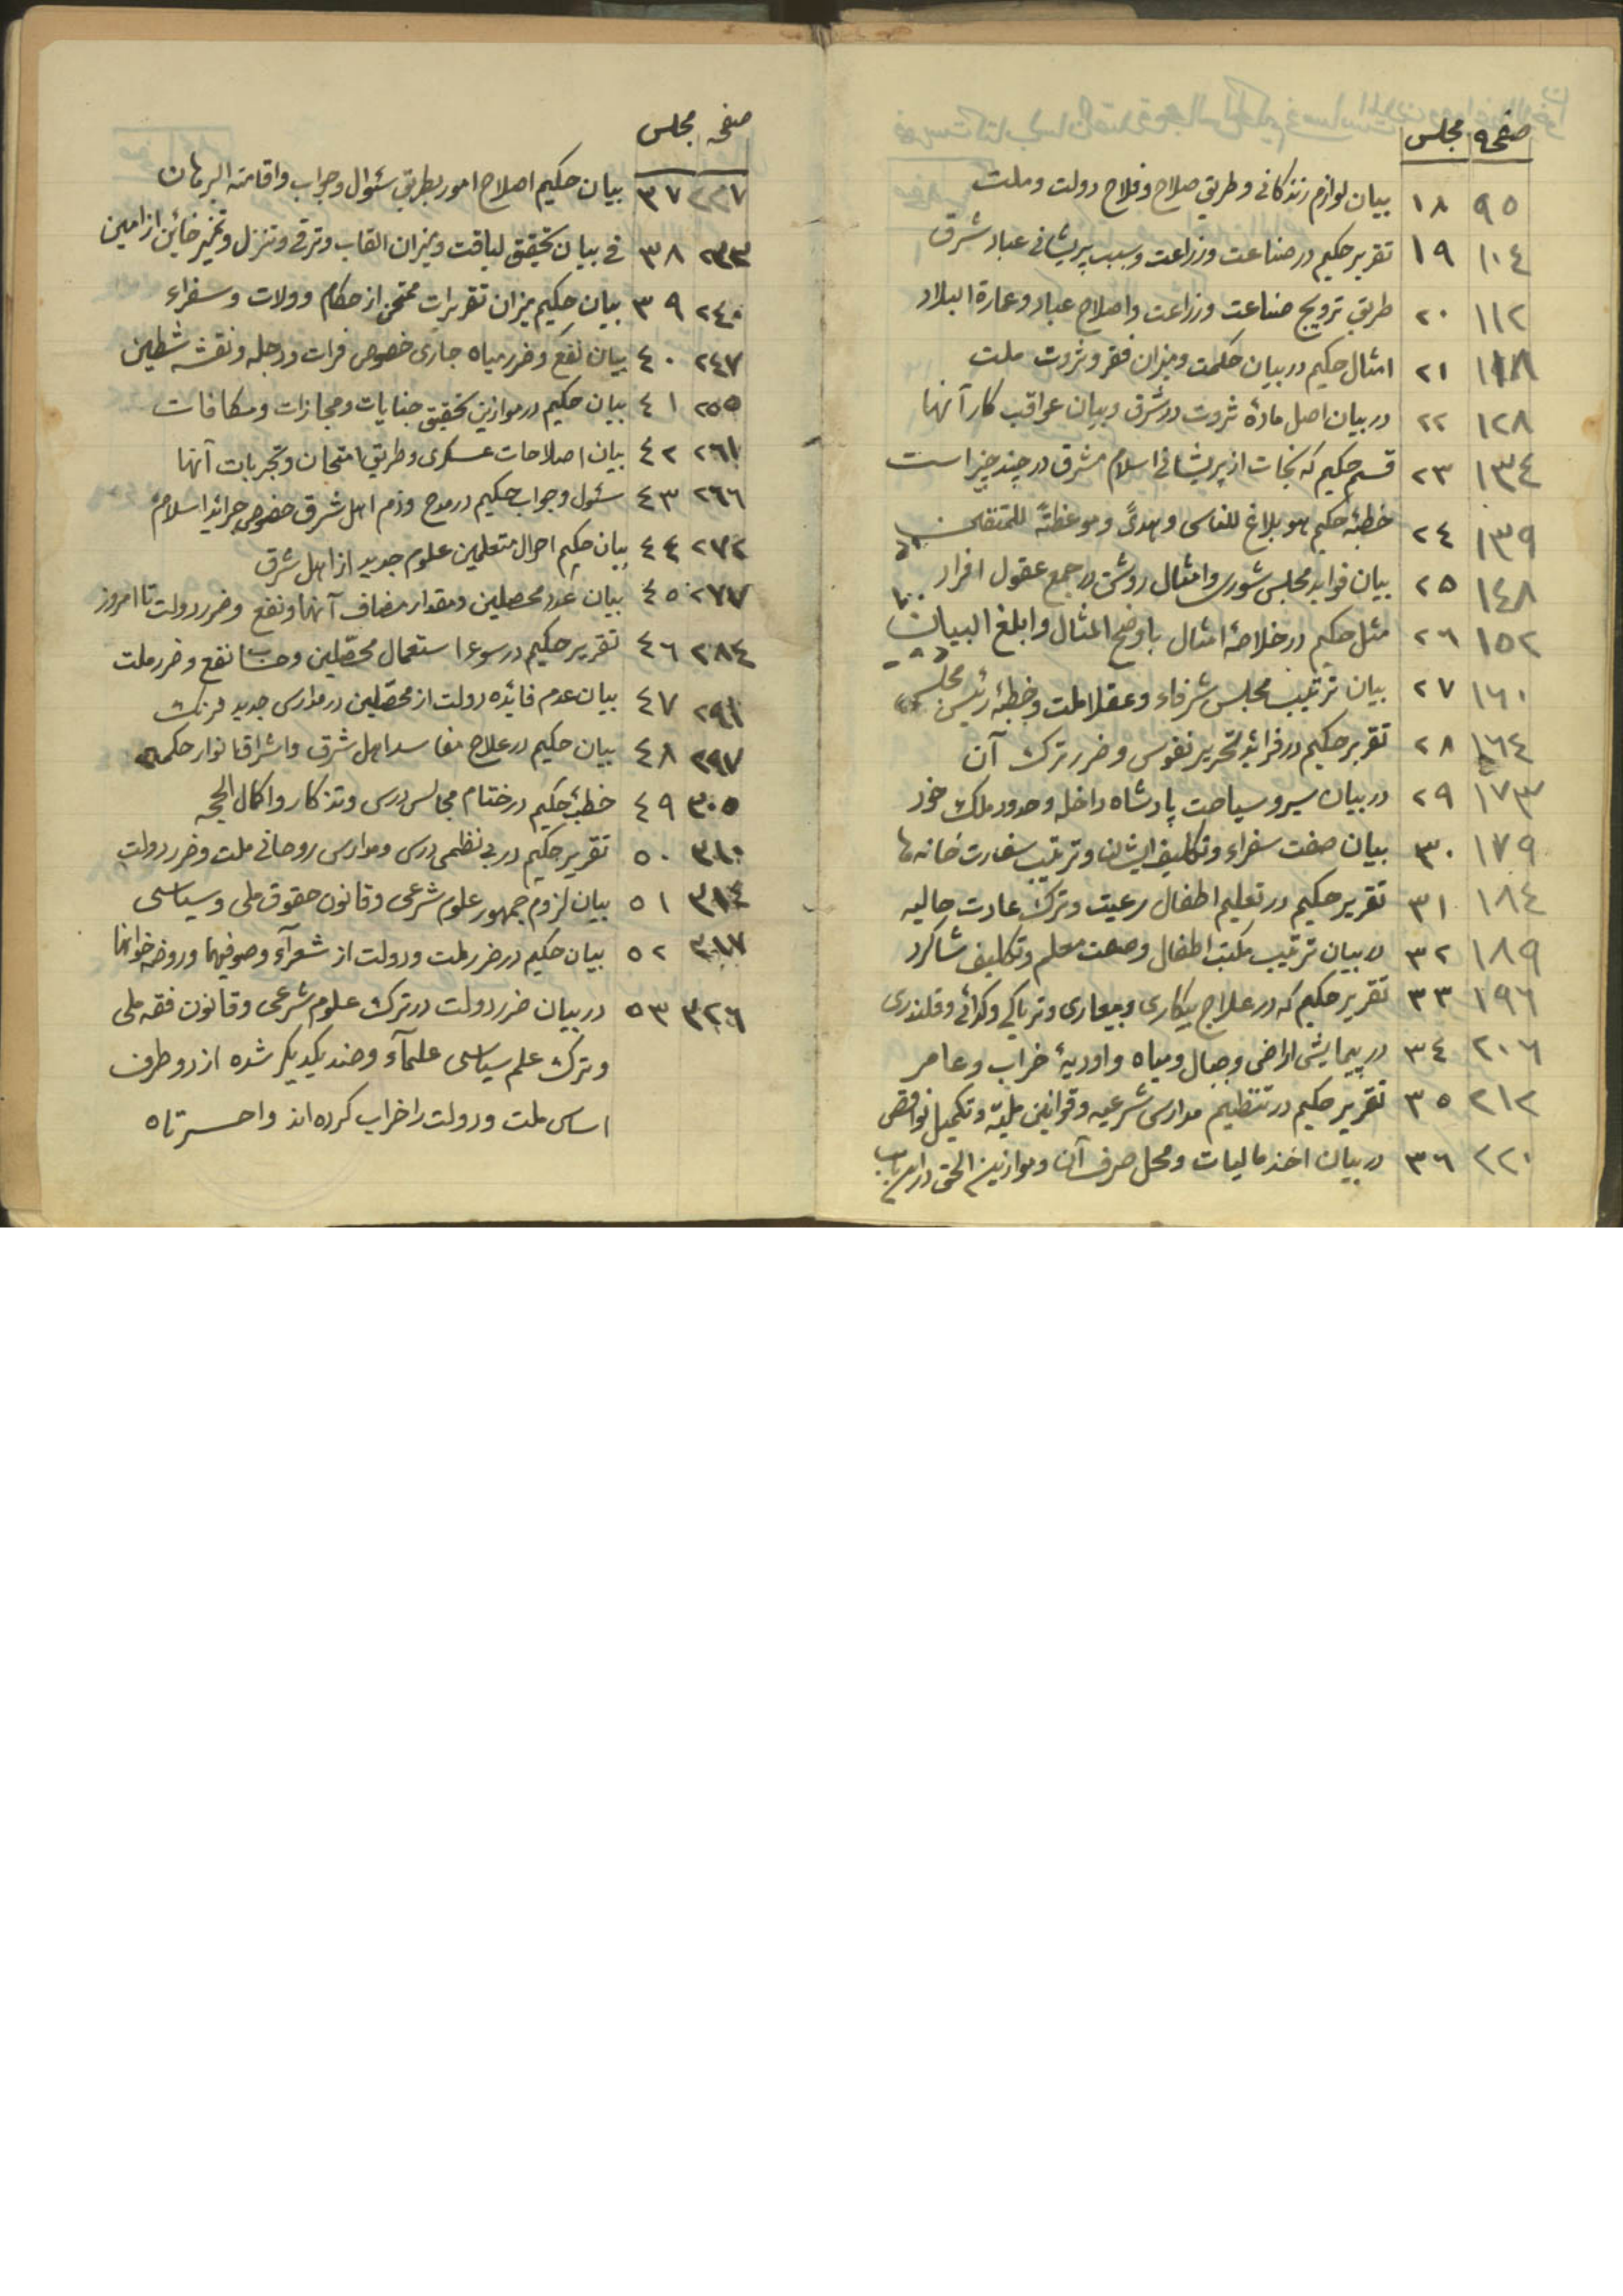 صفحه مجلس
٩٥ ١٨ بیان لوازم زندکانی و طریق صلاح و فلاح دولت و ملت
١٠٤ ١٩ تقریر حکیم در صناعت وزراعت و سبب پریشانی عباد شرق
١١٢ ٢٠ طریق ترویج صناعت وزراعت واصلاح عباد وعمارة البلاد
١١٨ ٢١ امثال حکیم در بیان حکمت ومیزان فقر و ثروت ملت
١٢٨ ٢٢ در بیان اصل مادهٔ ثروت در شرق و بیان عواقب کار آنها
١٣٤ ٢٣ قسم حکیم که نجات از پریشانی اسلام مشرق در چند چیز است
١٣٩ ٢٤ خطبهٔ حکیم هو بلاغ للناس وهدیً وموعظتهً للمتقین
١٤٨ ٢٥ بیان فواید مجلس شوری وامثال روشن در جمع عقول افراد
١٥٢ ٢٦ مثل حکیم در خلاصهٔ امثال باوضح المثال وابلغ البیان
١٦٠ ٢٧ بیان ترتیب مجلس شرفاء وعقلا ملت وخطبهٔ رئیس مجلس
١٦٤ ٢٨ تقریر حکیم در فرائد تحریر نفوس وضرر ترک آن
١٧٣ ٢٩ در بیان سیر و سیاحت پادشاه داخله وحدود ملک خود
١٧٩ ٣٠ بیان صفت سفراء وتکالیف ایشان وترتیب سفارت خانه ها
١٨٤ ٣١ تقریر حکیم در تعلیم اطفال رعیت وترک عادت حالیه
١٨٩ ٣٢ در بیان ترتیب مکتب اطفال وصفت معلم وتکلیف شاکرد
١٩٦ ٣٣ تقریر حکیم که در علاج بیکاری وبیعاری وتریاکی وکدائی وقلندری
٢٠٦ ٣٤ در پیمایش اراضی وجبال ومیاه واودیهٔ خراب وعامر
٢١٢ ٣٥ تقریر حکیم در تنظیم مدارس شرعیه وقوانین ملیّه وتکمیل نواقص
٢٢٠ ٣٦ در بیان اخذ مالیات ومحل صرف آن وموازین الحق
صفحه مجلس
٢٢٧ ٣٧ بیان حکیم اصلاح امور بطریق سئوال وجواب واقامته البرهان
٢٣٣ ٣٨ فی بیان تحقیق لیاقت ومیزان القاب وترقی وتنزل وتمیز خائن از امین
٢٤٠ ٣٩ بیان حکیم میزان تقریرات ممتحن از حکام وولات وسفراء
٢٤٧ ٤٠ بیان نفع وضرر میاه جاری خصوص فرات ودجله ونقشه شطین
٢٥٥ ٤١ بیان حکیم در موازین تحقیق جنایات ومجازات ومکافات
٢٦١ ٤٢ بیان اصلاحات عسکری وطریق امتحان وتجربات آنها
٢٦٦ ٤٣ سئول وجواب حکیم در مدح وذم اهل شرق خصوص جرائد اسلام
٢٧٢ ٤٤ بیان حکیم احوال متعلمین علوم جدید از اهل شرق
٢٧٧ ٤٥ بیان عدد محصلین ومقدار مصاف آنها ونفع وضرر دولت تا امروز
٢٨٤ ٤٦ تقریر حکیم در سوء استعمال محصّلین وحساب نفع وضرر ملت
٢٩١ ٤٧ بیان عدم فائده دولت از محصّلین در مدارس جدید فرنک
٢٩٧ ٤٨ بیان حکیم در علاج مفاسد اهل شرق واشراق انوار حکمه
٣٠٥ ٤٩ خطبهٔ حکیم در ختام مجالس درس وتذکار واکمال الحجه
٣١٠ ٥٠ تقریر حکیم در بی نظمی درس ومدارس روحانی ملت وضرر دولت
٣١٤ ٥١ بیان لزوم جمهور علوم شرعی وقانون حقوق ملی وسیاسی
٣١٧ ٥٢ بیان حکیم در ضرر ملت ودولت از شعرآء وصوفیها وروضه خوانها
٣٢٦ ٥٣ در بیان ضرر دولت در ترک علوم شرعی وقانون فقه ملی
وترک علم سیاسی علمآء وضد یکدیکر شده از دو طرف
اساس ملت ودولت را خراب کرده اند واحسرتاه